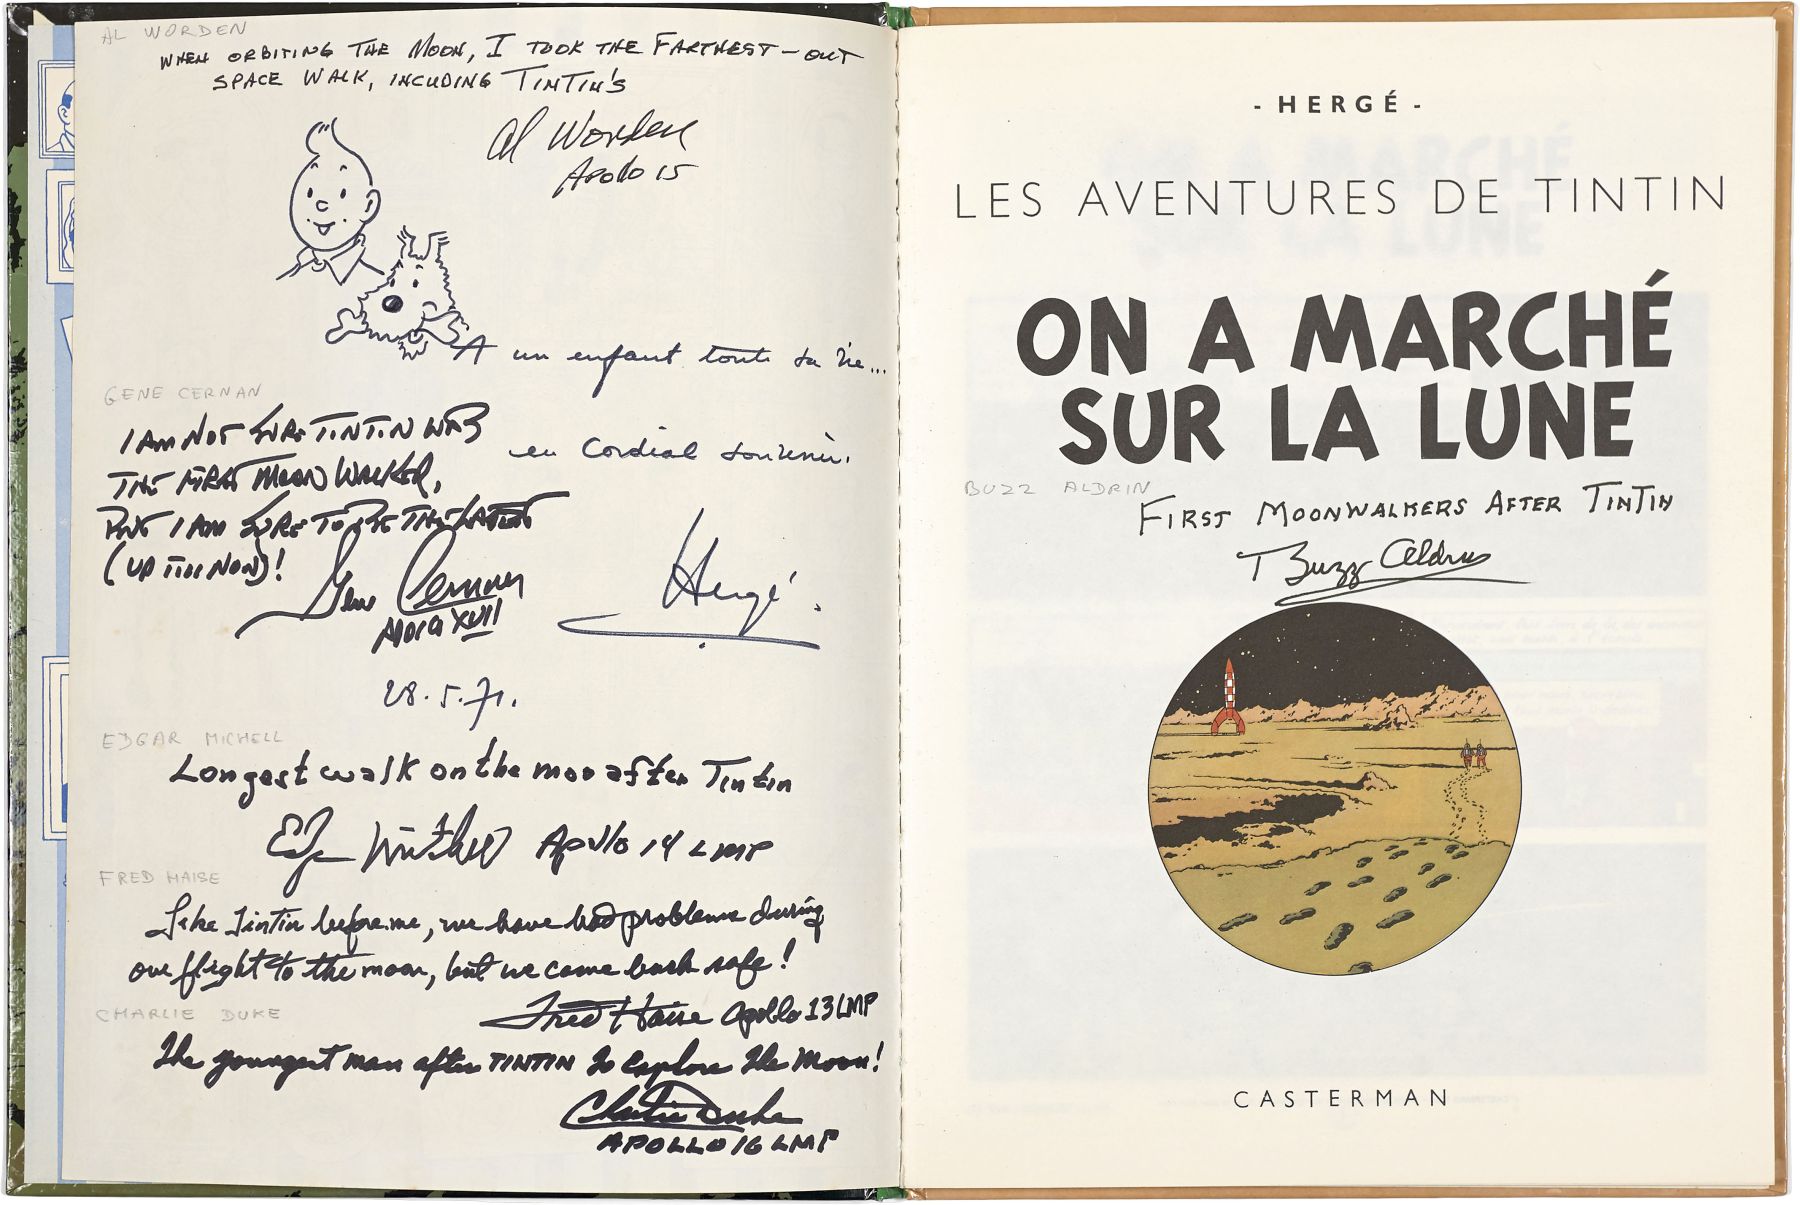 AL WORDEN
WHEN ORBITING THE MOON, I TOOK THE FARTHEST-OUT
SPACE WALK, INCLUDING TINTIN'S
Al Worden
Apollo 15
A un enfant toute sa vie...
en cordial souvenir.
Hergé.
28.5.71.
GENE CERNAN
I AM NOT SURE TINTIN WAS
THE FIRST MOON WALKER,
BUT I AM SURE TO BE THE LATEST
(UP TILL NOW)!
Gene Cernan
Apollo XVII
EDGAR MICHELL
Longest walk on the moon after Tintin
Edgar Mitchell Apollo 14 LMP
FRED HAISE
Like Tintin before me, we have had problems during
our flight to the moon, but we came back safe!
Fred Haise Apollo 13 LMP
CHARLIE DUKE
The youngest man after TINTIN to explore the Moon!
Charlie Duke
APOLLO 16 LMP
- HERGÉ -
LES AVENTURES DE TINTIN
ON A MARCHÉ
SUR LA LUNE
BUZZ ALDRIN
FIRST MOONWALKERS AFTER TINTIN
Buzz Aldrin
CASTERMAN